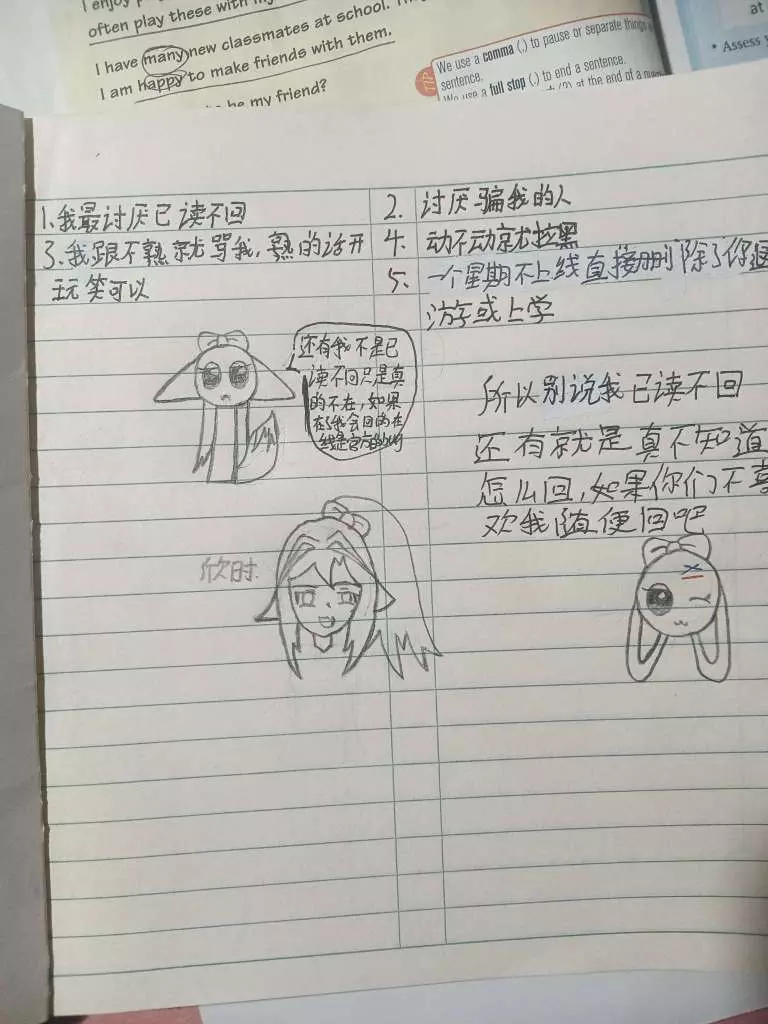 I enjoy
often play these with my
I have many new classmates at school.
I am happy to make friends with them.
be my friend?
TIP
We use a comma (,) to pause or separate things
sentence.
We use a full stop (.) to end a sentence.
at the end of a
at
• Assess
1.我最讨厌已读不回
2. 讨厌骗我的人
3.我跟不熟就骂我,熟的话开
玩笑可以
4. 动不动就拉黑
5、一个星期不上线直接删除了你退
游或上学
还有我不是已
读不回只是真
的不在,如果
在了我会回的在
线是官方的
所以别说我已读不回
还有就是真不知道
怎么回,如果你们不喜
欢我随便回吧
欣时.